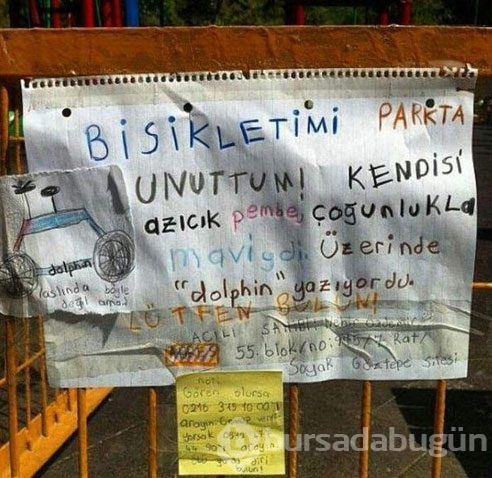 BİSİKLETİMİ PARKTA
UNUTTUM! KENDİSİ
azıcık pembe, çoğunlukla
maviydi. Üzerinde
"dolphin" yazıyordu.
LÜTFEN BULUN!
ACILI SAHİBİ:
55. blok/no: kat/
Soyak Göztepe Sitesi
dolphin
aslında böyle
değil ama
not:
Gören olursa
0216
arayın.
bulun!
bursadabugün